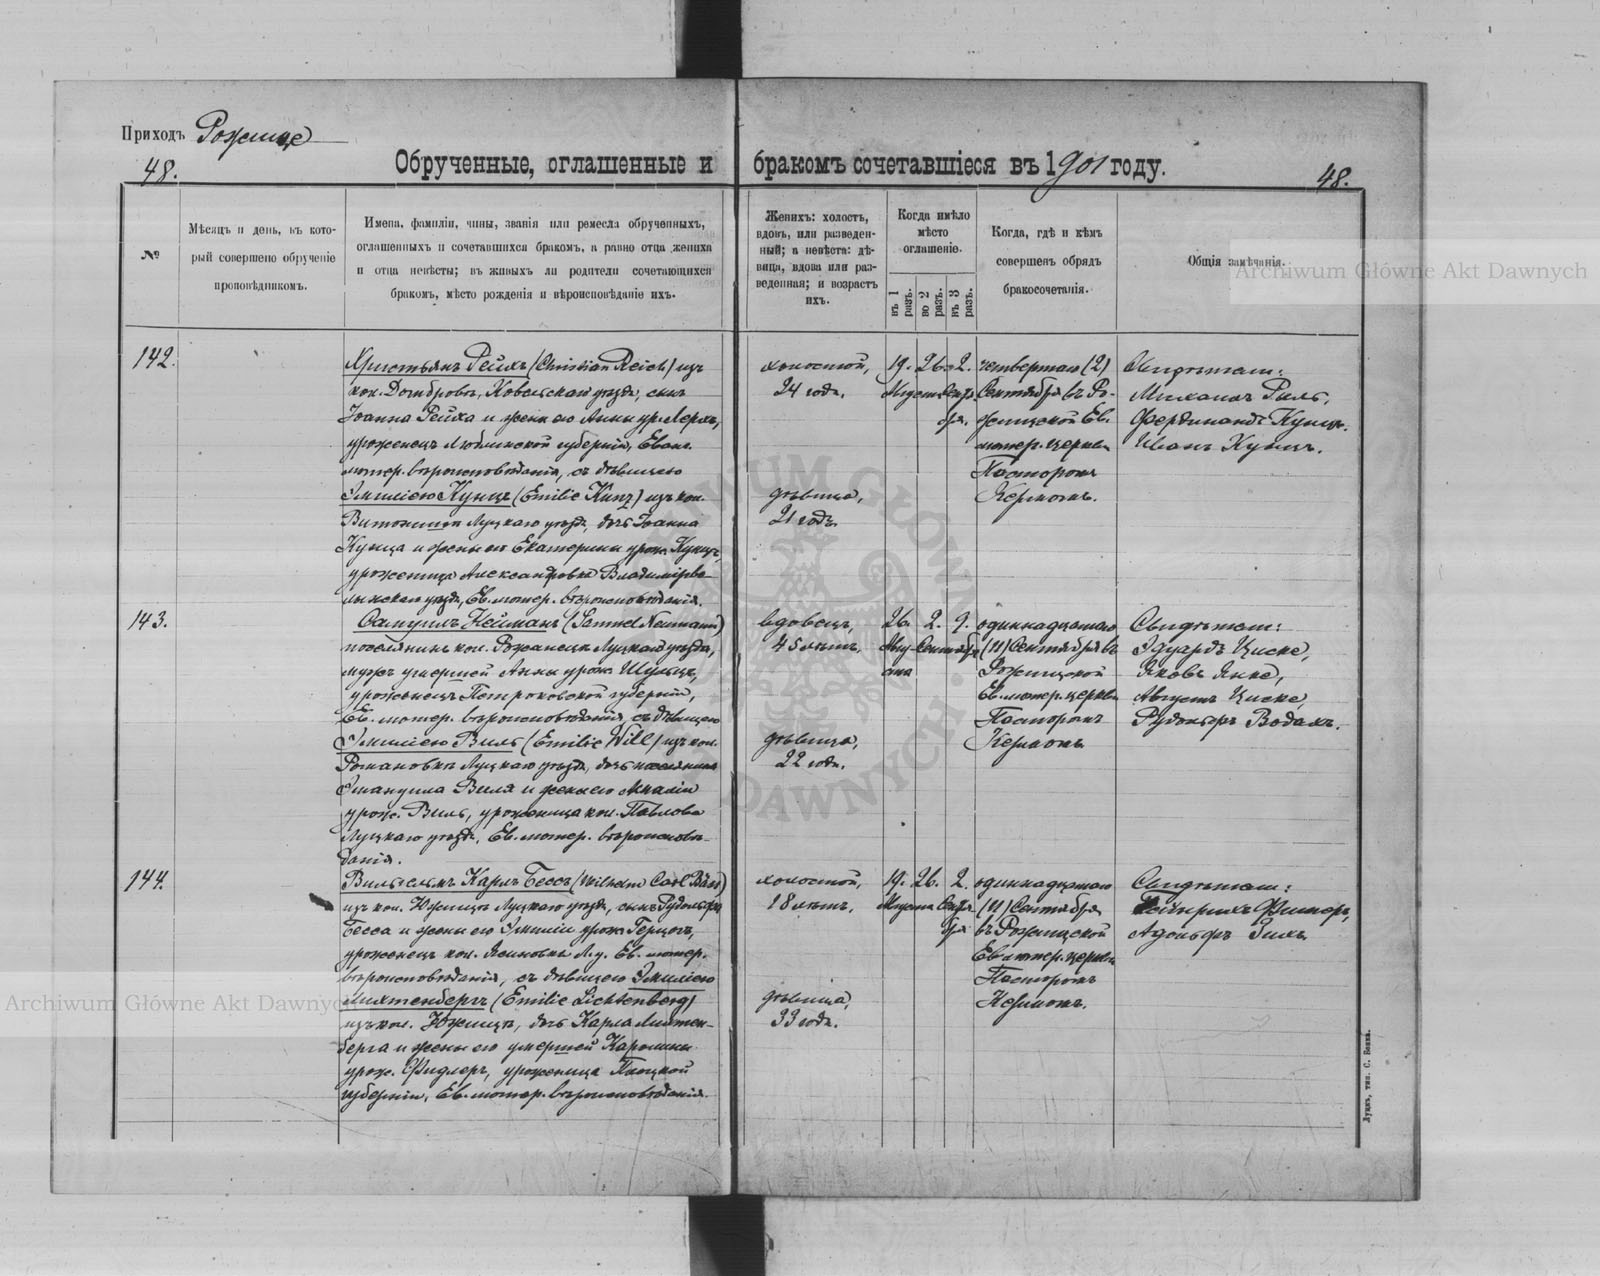 Приходъ Рожище
48.
Обрученные, оглашенные и бракомъ сочетавшіеся въ 1901 году.
48.
№
Мѣсяцъ и день, въ кото-
рый совершено обрученіе
проповѣдникомъ.
Имена, фамиліи, чины, званія или ремесла обрученныхъ,
оглашенныхъ и сочетавшихся бракомъ, а равно отца жениха
и отца невѣсты; въ живыхъ ли родители сочетающихся
бракомъ, мѣсто рожденія и вѣроисповѣданіе ихъ.
Женихъ: холостъ,
вдовъ, или разведен-
ный; а невѣста: дѣ-
вица, вдова или раз-
веденная; и возрастъ
ихъ.
Когда имѣло
мѣсто
оглашеніе.
въ 1 разъ.
во 2 разъ.
въ 3 разъ.
Когда, гдѣ и кѣмъ
совершенъ обрядъ
бракосочетанія.
Общія замѣчанія.
142.
Христьянъ Рейхъ (Christian Reich) изъ
кол. Домбровка, Ковельскаго уѣзда, сынъ
Іоанна Рейха и жены его Анны ур. Лерхъ,
уроженецъ Люблинской губерніи, Еванг.
лютер. вѣроисповѣданія, съ дѣвицею
Эмиліею Кунцъ (Emilie Kunz) изъ кол.
Витонижъ Луцкаго уѣзда, дочь Іоанна
Кунца и жены его Екатерины урож. Кунцъ,
уроженица Александровка Владимірво-
лынскаго уѣзда, Ев. лютер. вѣроисповѣданія.
холостой,
24 года.
дѣвица,
21 годъ.
19. 26. 2.
Августа Сентя-
бря.
четвертаго (2)
Сентября въ Ро-
жищской Ев.
лютер. церкви
Пасторомъ
Керномъ.
Свидѣтели:
Михаилъ Рыль,
Фердинандъ Кунцъ.
Иванъ Кунцъ.
143.
Самуилъ Нейманъ (Samuel Neumann)
поселянинъ кол. Рожанецъ Луцкаго уѣзда,
мужъ умершей Анны урож. Шульцъ,
уроженецъ Петроковской губерніи,
Ев. лютер. вѣроисповѣданія, съ дѣвицею
Эмиліею Виль (Emilie Will) изъ кол.
Романовка Луцкаго уѣзда, дочь поселянина
Эмануила Виля и жены его Амаліи
урож. Виль, уроженица кол. Павловка
Луцкаго уѣзда, Ев. лютер. вѣроисповѣ-
данія.
вдовецъ,
45 лѣтъ.
дѣвица,
22 года.
26. 2. 9.
Авгу- Сентября
ста
одиннадцатаго
(11) Сентября въ
Рожищской
Ев. лютер. церкви
Пасторомъ
Керномъ
Свидѣтели:
Эдуардъ Циске,
Яковъ Янке,
Августъ Циске,
Рудольфъ Водахъ.
144.
Вильгельмъ Карлъ Бессъ (Wilhelm Carl Bäss)
изъ кол. Южицъ Луцкаго уѣзда, сынъ Рудольфа
Бесса и жены его Эмиліи урож. Герцогъ,
уроженецъ кол. Яниновка Л. у. Ев. лютер.
вѣроисповѣданія, съ дѣвицею Эмиліею
Лихтенбергъ (Emilie Lichtenberg)
изъ кол. Южицъ, дочь Карла Лихтен-
берга и жены его умершей Каролины
урож. Фидлеръ, уроженица Плоцкой
губерніи, Ев. лютер. вѣроисповѣданія.
холостой,
18 лѣтъ.
дѣвица,
33 года.
19. 26. 2.
Августа Сентя-
бря
одиннадцатаго
(11) Сентября
въ Рожищской
Ев лютер. церкви
Пасторомъ
Керномъ.
Свидѣтели:
Гейнрихъ Фишеръ,
Адольфъ Зихъ
Луцкъ, тип. С. Бонка.
Archiwum Główne Akt Dawnych
Archiwum Główne Akt Dawnych